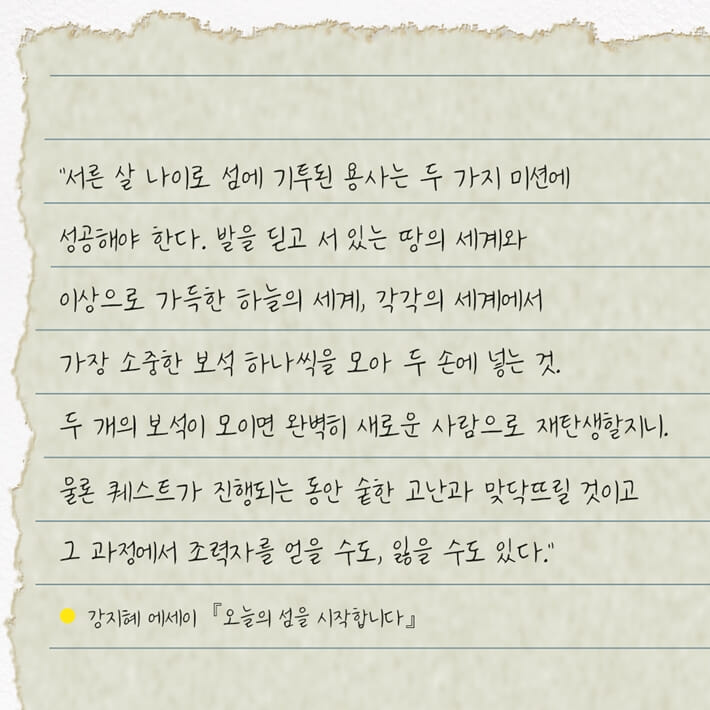 "서른 살 나이로 섬에 기투된 용사는 두 가지 미션에
성공해야 한다. 발을 딛고 서 있는 땅의 세계와
이상으로 가득한 하늘의 세계, 각각의 세계에서
가장 소중한 보석 하나씩을 모아 두 손에 넣는 것.
두 개의 보석이 모이면 완벽히 새로운 사람으로 재탄생할지니.
물론 퀘스트가 진행되는 동안 숱한 고난과 맞닥뜨릴 것이고
그 과정에서 조력자를 얻을 수도, 잃을 수도 있다."
강지혜 에세이 『오늘의 섬을 시작합니다』